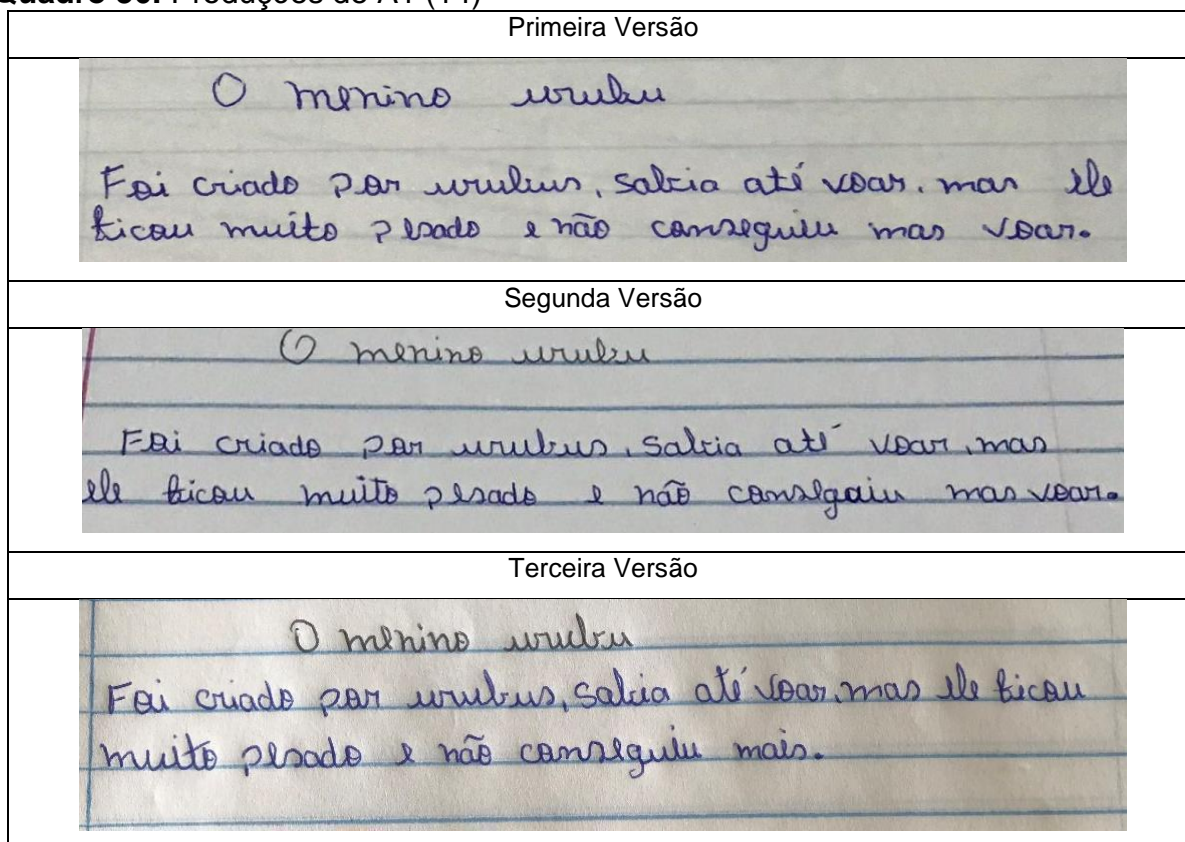 Produções do A1 (T4)
Primeira Versão
O menino urubu
Foi criado por urubus, sabia até voar. mas ele
ficou muito pesado e não conseguiu mas voar.
Segunda Versão
O menino urubu
Foi criado por urubus, sabia até voar, mas
ele ficou muito pesado e não consegaiu mas voar.
Terceira Versão
O menino urubu
Foi criado por urubus, sabia até voar, mas ele ficou
muito pesado e não conseguiu mais.